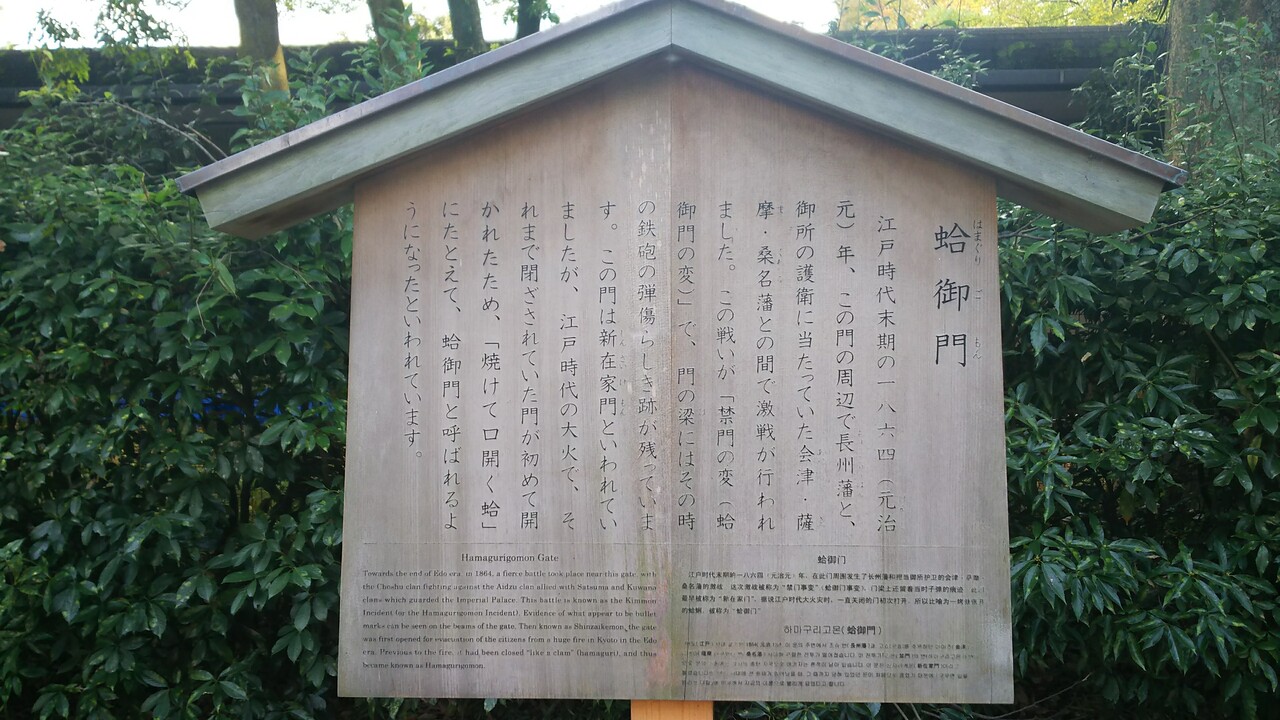 蛤御門
はまぐり ご もん
江戸時代末期の一八六四（元治
元）年、この門の周辺で長州藩と、
御所の護衛に当たっていた会津・薩
摩・桑名藩との間で激戦が行われ
ました。この戦いが「禁門の変（蛤
御門の変）」で、門の梁にはその時
の鉄砲の弾傷らしき跡が残っていま
す。この門は新在家門といわれてい
ましたが、江戸時代の大火で、そ
れまで閉ざされていた門が初めて開
かれたため、「焼けて口開く蛤」
にたとえて、蛤御門と呼ばれるよ
うになったといわれています。
Hamagurigomon Gate
Towards the end of Edo era, in 1864, a fierce battle took place near this gate, with
the Choshu clan fighting against the Aidzu clan allied with Satsuma and Kuwana
clans which guarded the Imperial Palace. This battle is known as the Kinmon
Incident (or the Hamagurigomon Incident). Evidence of what appear to be bullet
marks can be seen on the beams of the gate. Then known as Shinzaikemon, the gate
was first opened for evacuation of the citizens from a huge fire in Kyoto in the Edo
era. Previous to the fire, it had been closed "like a clam" (hamaguri), and thus
became known as Hamagurigomon.
蛤御门
江户时代末期的一八六四（元治元）年，在此门周围发生了长州藩和担当御所护卫的会津、萨摩
桑名藩的激战。这次激战被称为"禁门事变"（蛤御门事变）。门梁上还留着当时子弹的痕迹。
最早被称为"新在家门"，据说江户时代大火灾时，一直关闭的门初次打开，所以比喻为
的蛤蜊，被称为"蛤御门"
하마구리고몬(蛤御門)